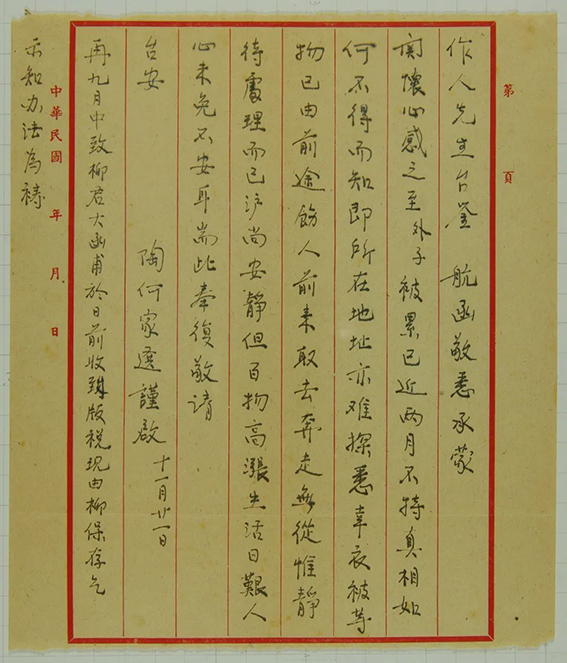 第　頁
作人先生台鉴　航函敬悉承蒙
関懷心感之至外子被累已近两月不特真相如
何不得而知即所在地址亦难探悉幸衣被等
物已由前途飭人前来取去奔走無從惟靜
待處理而已沪尚安靜但百物高漲生活日艱人
心未免不安耳耑此奉復敬请
台安
陶何家選謹啟　十一月廿一日
再九月中致柳君大函甫於日前收到版税现由柳保存乞
示知办法為祷
中華民國　年　月　日